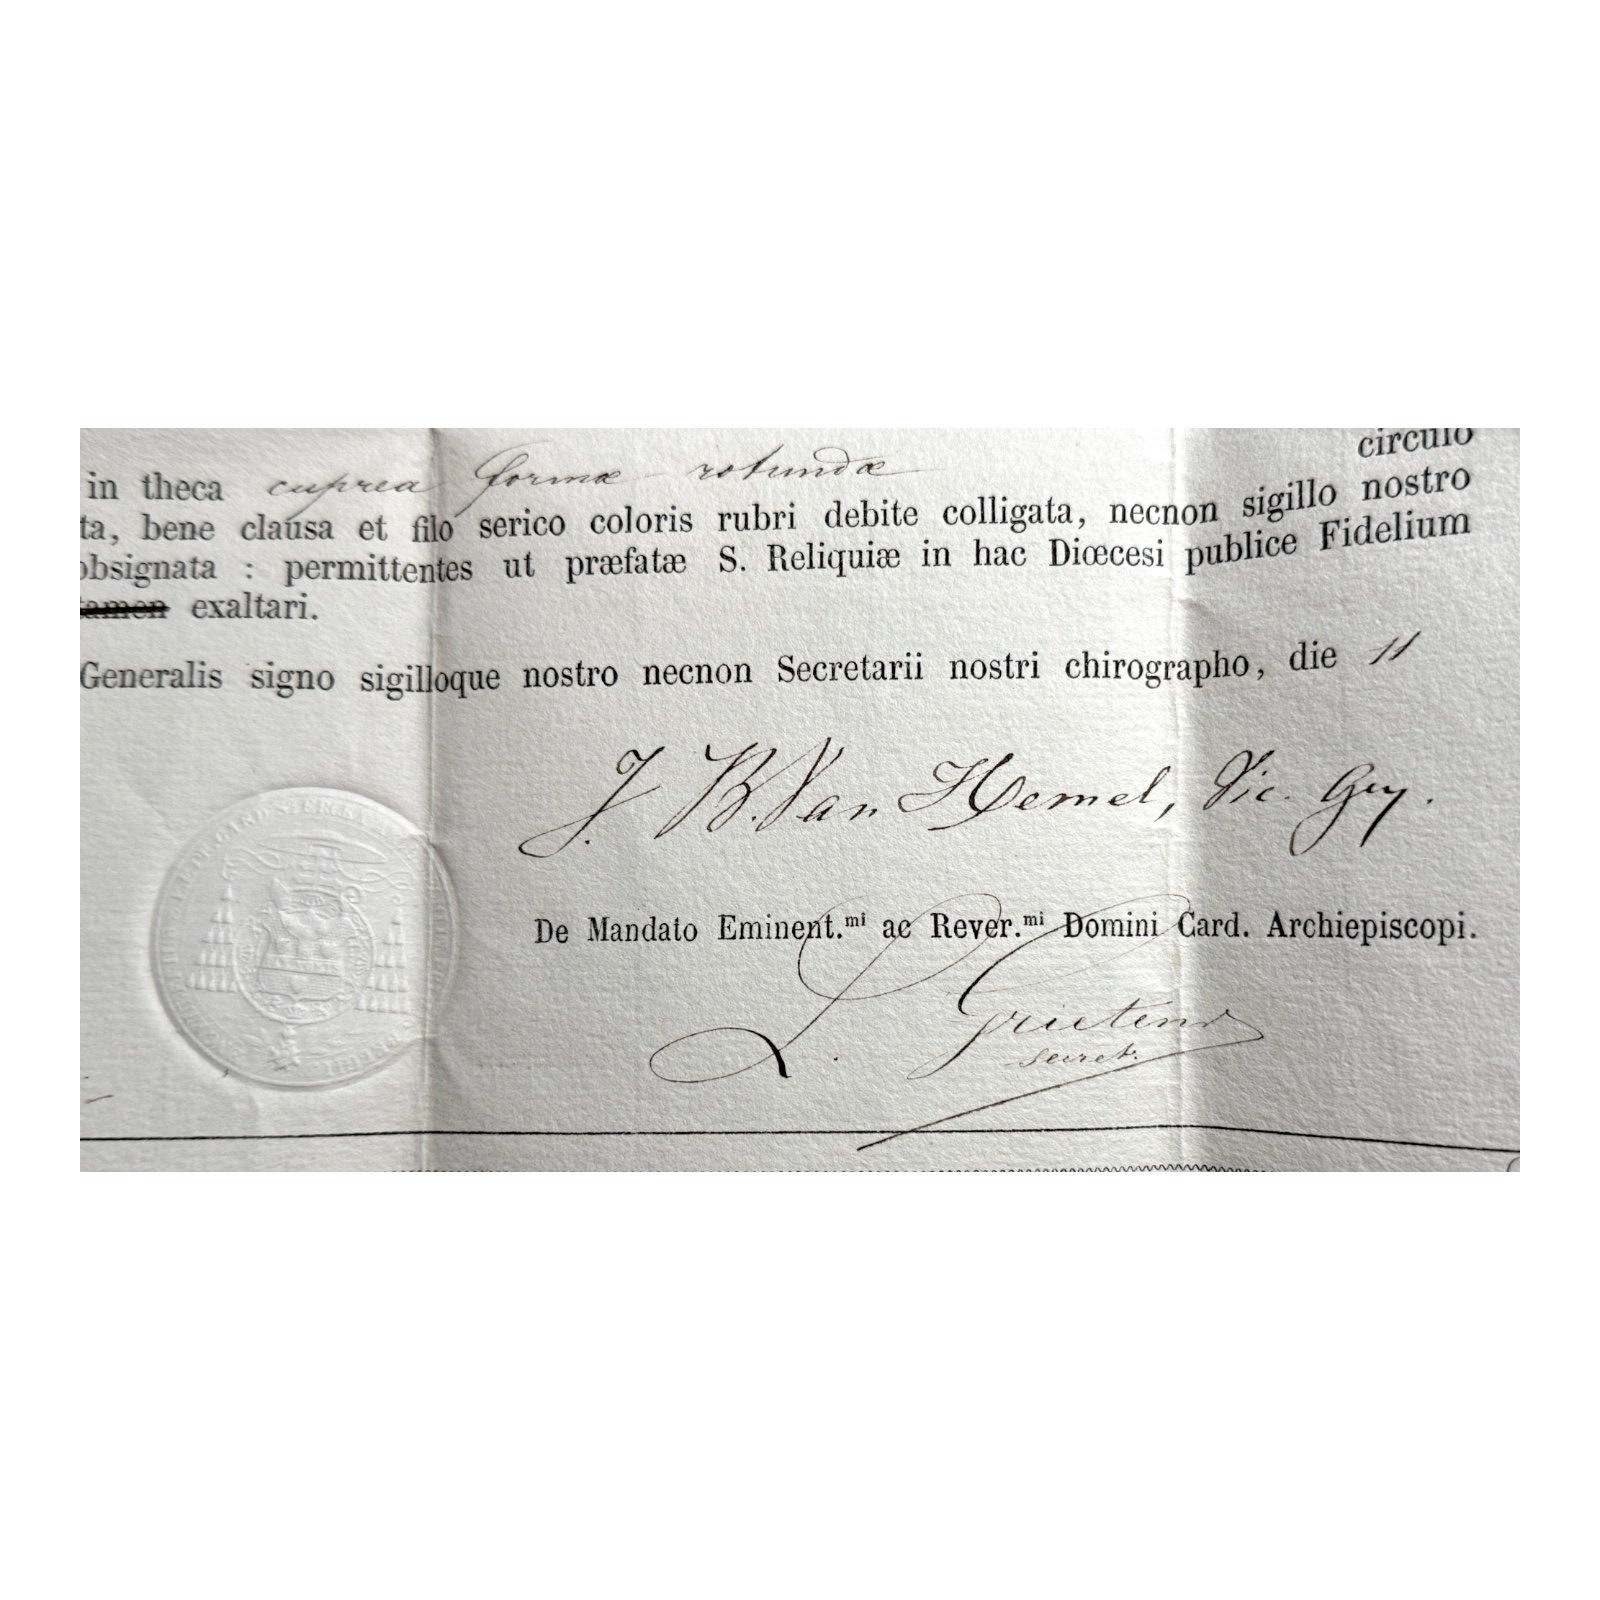 circulo
in theca cuprea formæ rotundæ
ta, bene clausa et filo serico coloris rubri debite colligata, necnon sigillo nostro
obsignata : permittentes ut præfatæ S. Reliquiæ in hac Diœcesi publice Fidelium
tamen exaltari.
Generalis signo sigilloque nostro necnon Secretarii nostri chirographo, die 11
J. B. Van Hemel, Vic. Gen.
De Mandato Eminent.mi ac Rever.mi Domini Card. Archiepiscopi.
L. Grietens
secret.